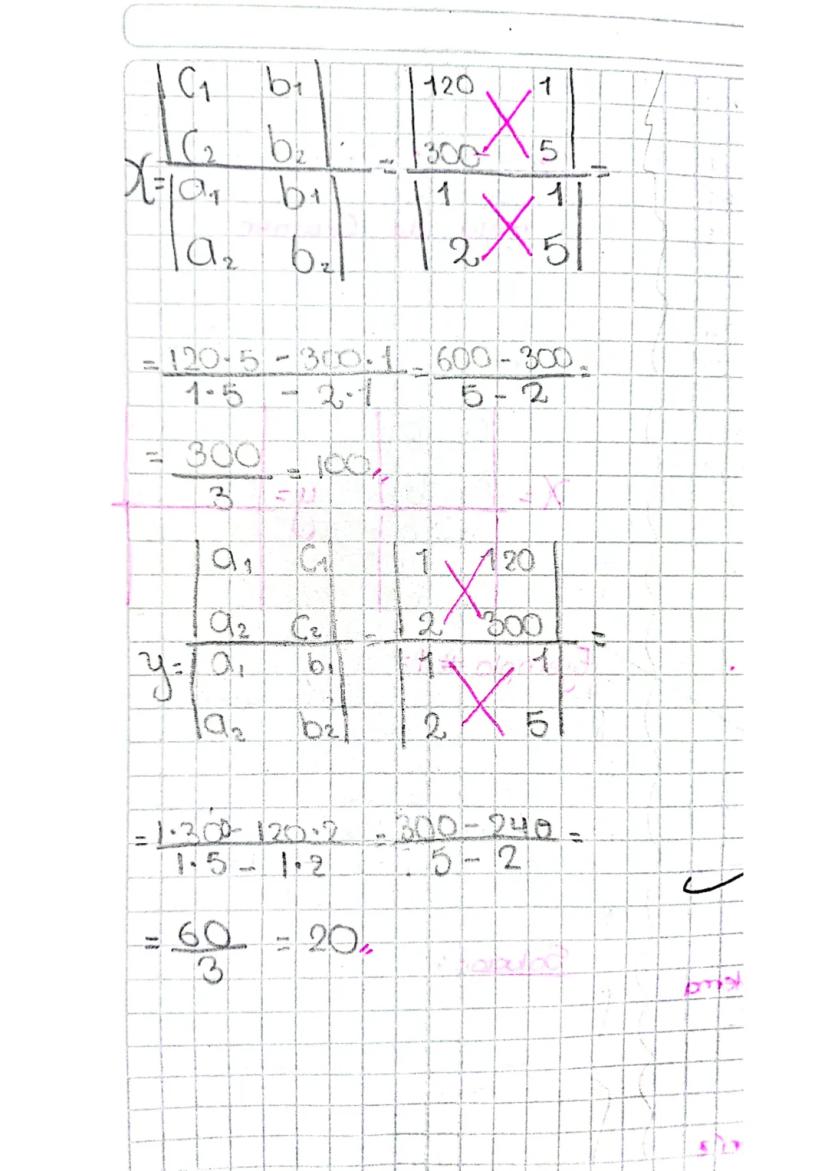 x = |c₁ b₁ c₂ b₂| / |a₁ b₁ a₂ b₂| = |120 1 300 5| / |1 1 2 5| =
= 120·5 - 300·1 / 1·5 - 2·1 = 600 - 300 / 5 - 2 =
= 300 / 3 = 100,,
y = |a₁ c₁ a₂ c₂| / |a₁ b₁ a₂ b₂| = |1 120 2 300| / |1 1 2 5| =
= 1·300 - 120·2 / 1·5 - 1·2 = 300 - 240 / 5 - 2 =
= 60 / 3 = 20,,